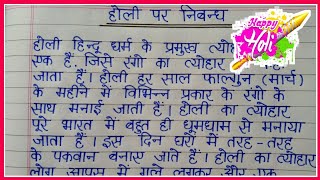 होली पर निबन्ध
Happy
Holi
होली हिन्दू धर्म के प्रमुख
एक है, जिसे रंगों का त्योहार
जाता है। होली हर साल फाल्गुन (मार्च)
के महीने में विभिन्न प्रकार के रंगों के
साथ मनाई जाती है। होली का त्योहार
पूरे भारत में बहुत ही धूमधाम से मनाया
जाता है। इस दिन घरों में तरह-तरह
के पकवान बनाए जाते हैं। होली का त्योहार
लोग आपस में गले लगकर और एक